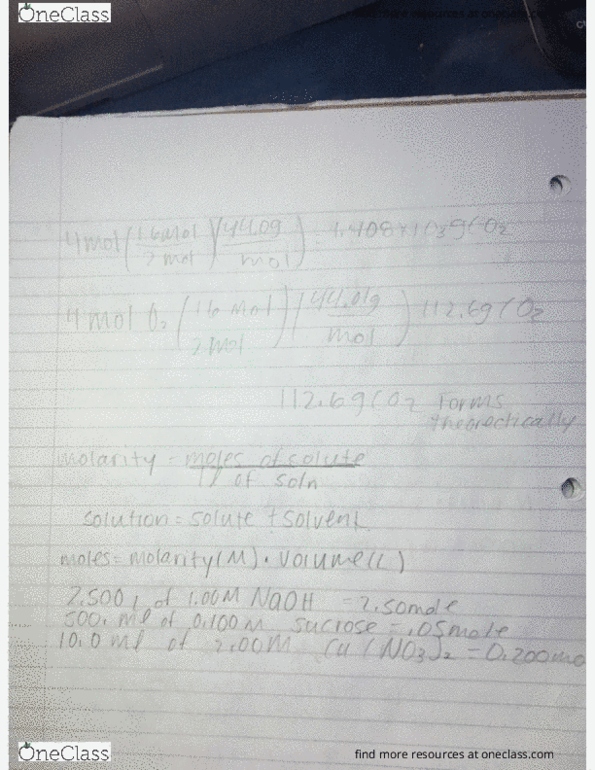 OneClass
find more resources at oneclass.com
4mol(16mol/2mol)(44.0g/mol) = 1.408×10³gCO₂
4 mol O₂ (16 mol/2mol)(44.01g/mol) 112.6g CO₂
112.6gCO₂ forms
theorectically
molarity = moles of solute
1 l of soln
solution = solute + solvent
moles = molarity(M) · volume(L)
2.500 l of 1.00M NaOH = 2.50mole
500. ml of 0.100M sucrose = .05mole
10.0 ml of 2.00M Cu(NO₃)₂ = 0.200mo
OneClass
find more resources at oneclass.com